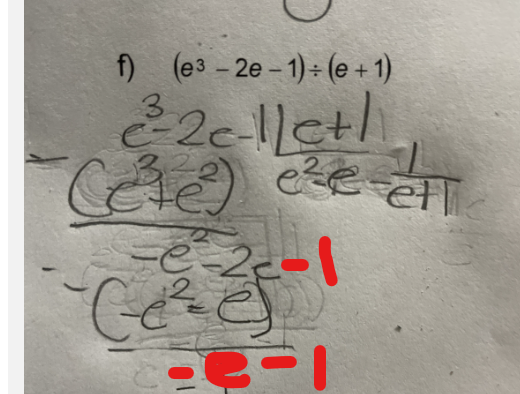 f) (e³ − 2e − 1) ÷ (e + 1)
e³-2e-1 | e+1
-(e³+e²) e²-e-1/e+1
-e²-2e-1
-(-e²-e)
-e-1